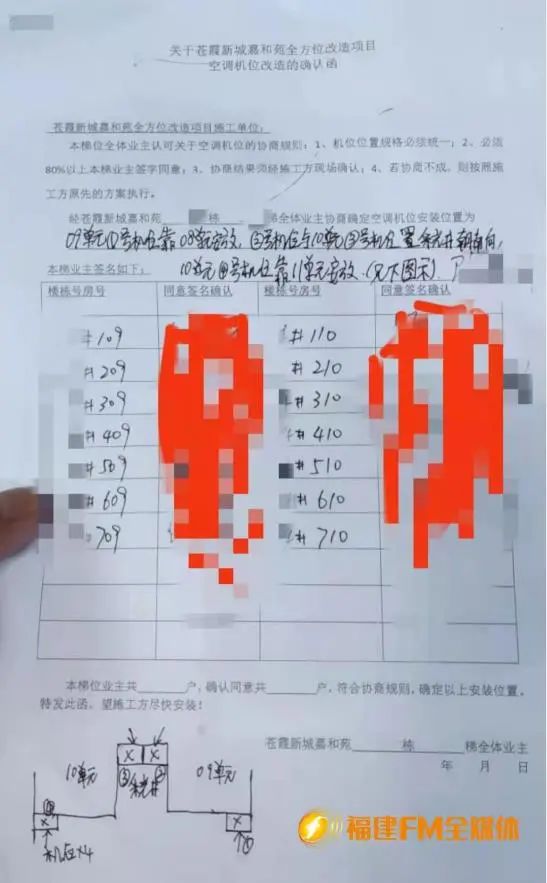 关于苍霞新城嘉和苑全方位改造项目
空调机位改造的确认函
苍霞新城嘉和苑全方位改造项目施工单位:
本梯位全体业主认可关于空调机位的协商规则:1、机位位置规格必须统一;2、必须
80%以上本梯业主签字同意;3、协商结果须经施工方现场确认;4、若协商不成,则按照施
工方原先的方案执行。
经苍霞新城嘉和苑 栋 梯全体业主协商确定空调机位安装位置为
09单元①号机位靠08单元安放,②号机位与10单元③号机位置采光井朝南向,
10单元④号机位靠11单元安放.(见下图示).
本梯业主签名如下:
楼栋号房号 同意签名确认 楼栋号房号 同意签名确认
#109 #110
#209 #210
#309 #310
#409 #410
#509 #510
#609 #610
709 #710
本梯位业主共______户,确认同意共______户,符合协商规则,确定以上安装位置,
特发此函。望施工方尽快安装!
苍霞新城嘉和苑 栋 梯全体业主
年 月 日
X X
10单元 ③采光井② 09单元
④
X X
机位×4 ①
福建FM全媒体